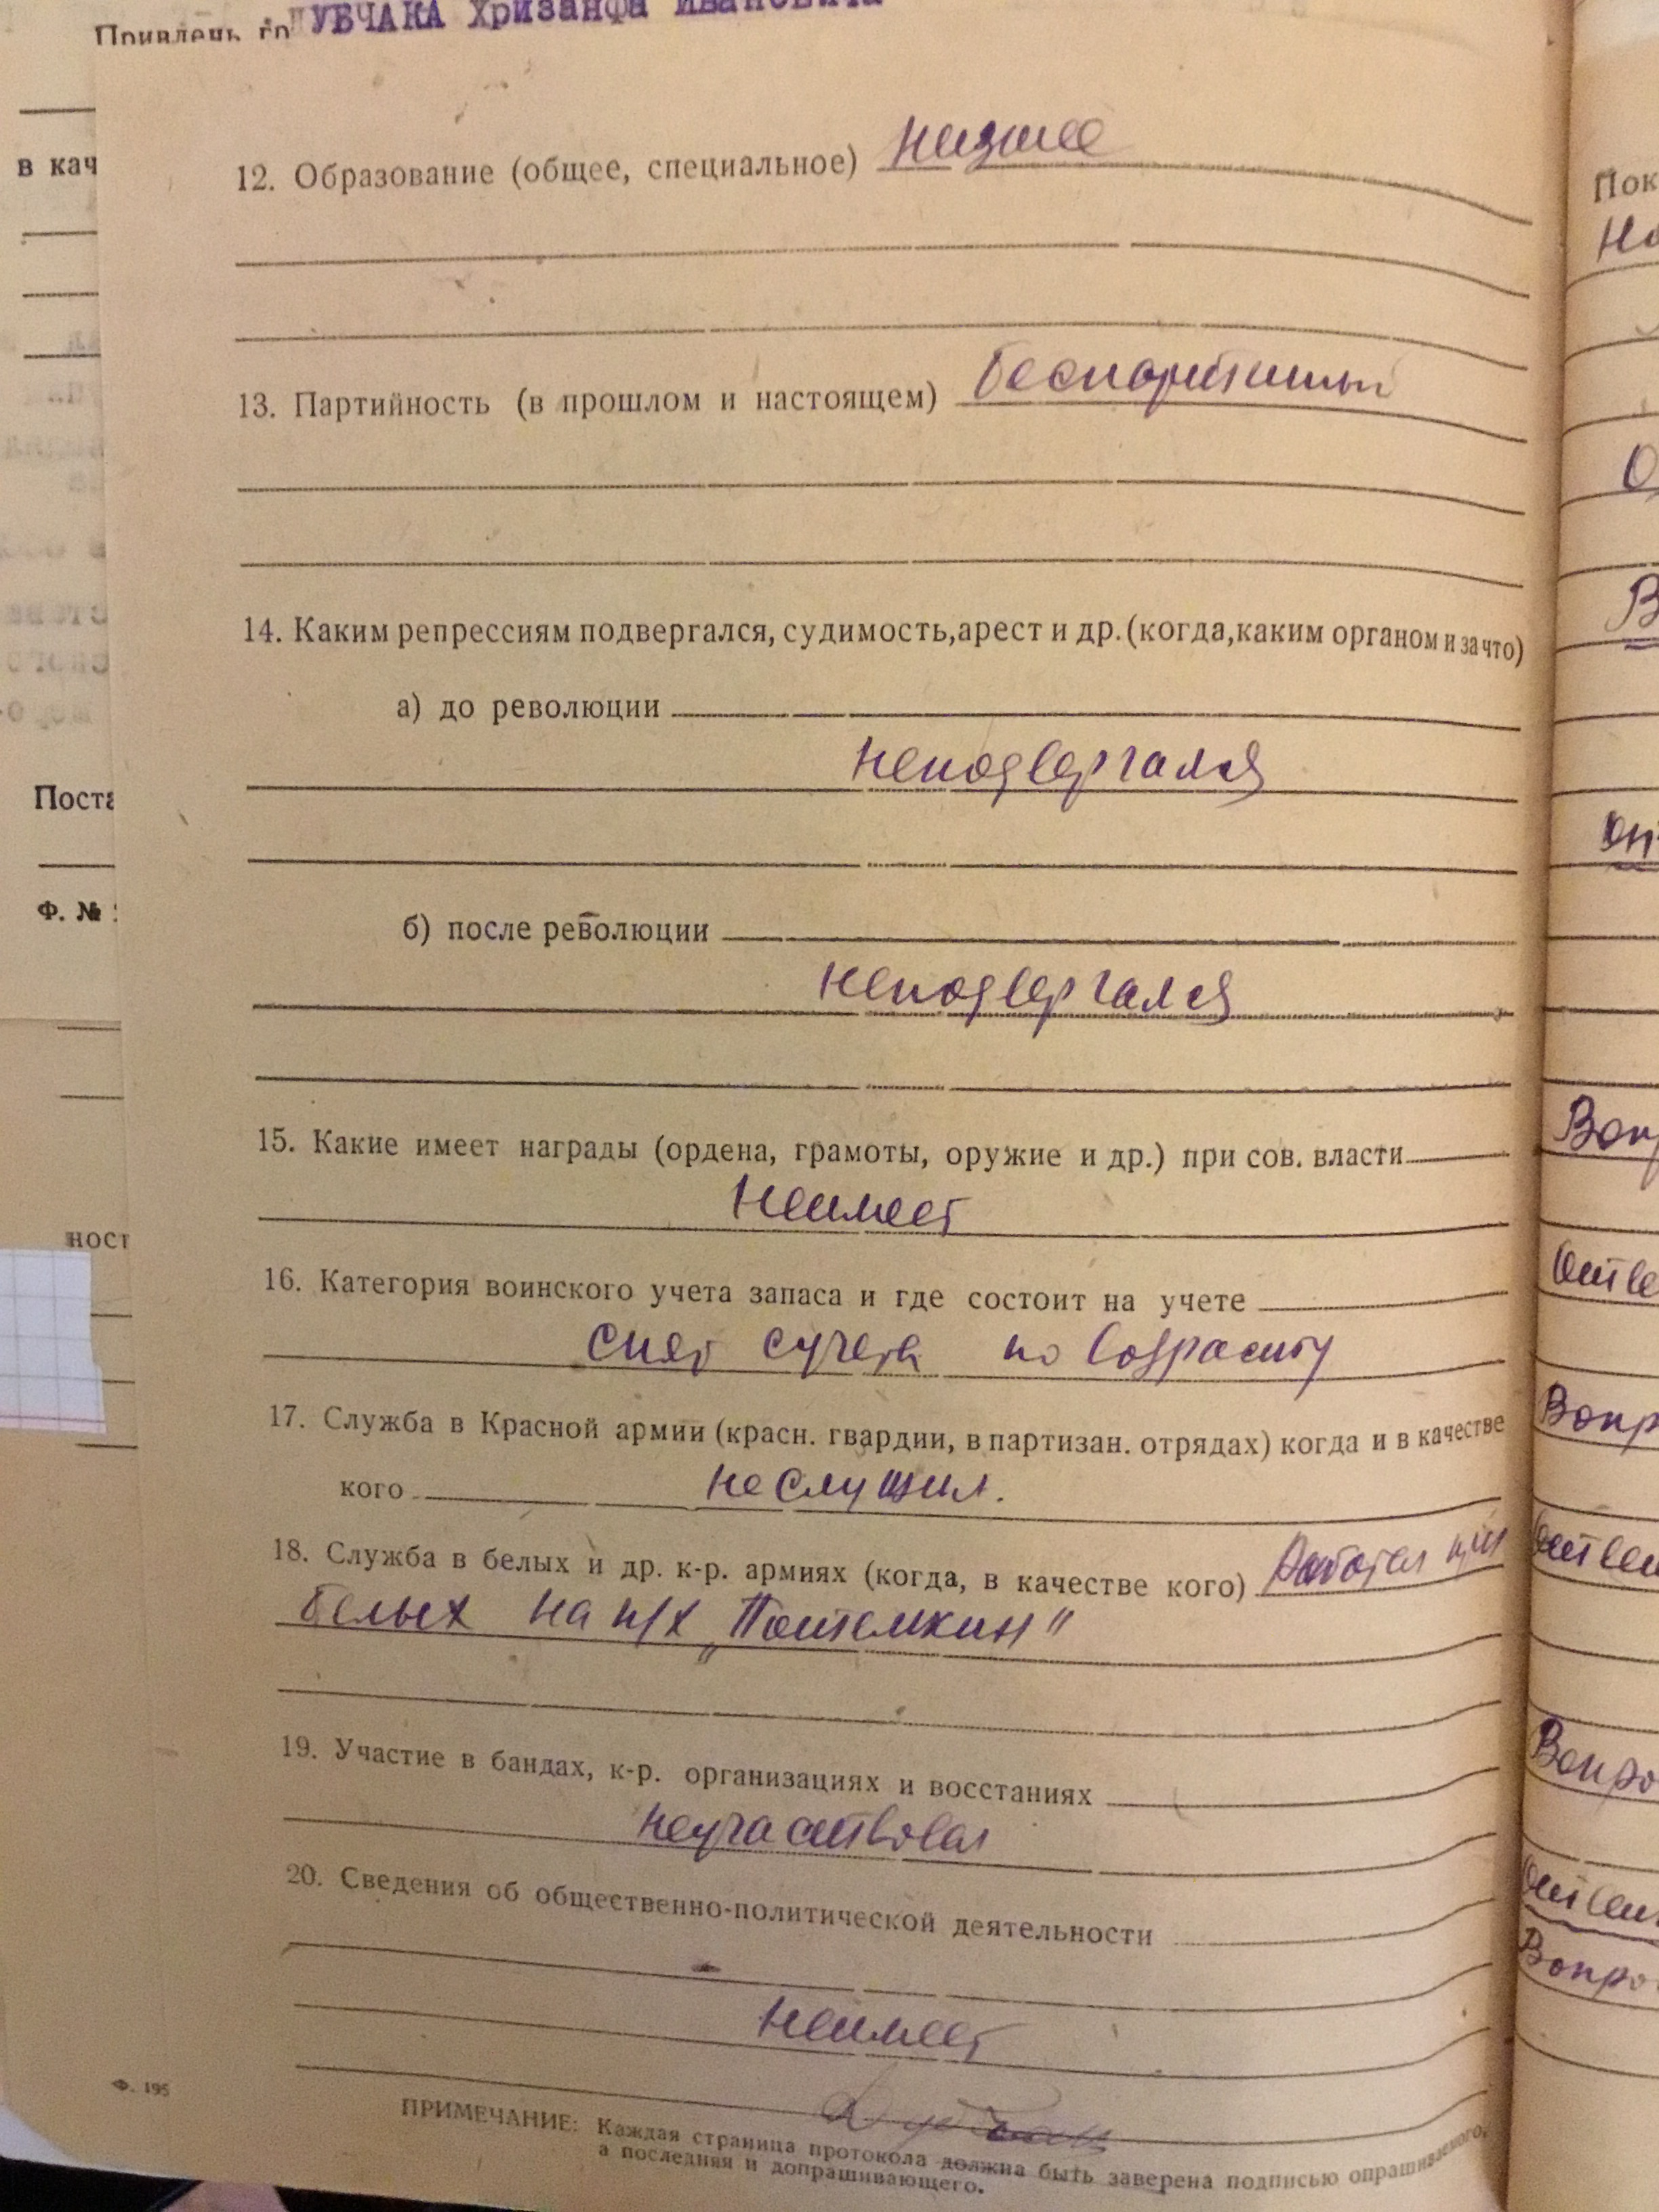 Привлечь гр. ДУБЧАКА Хризанфа Ивановича
в кач
12. Образование (общее, специальное) низшее
13. Партийность (в прошлом и настоящем) беспартийный
14. Каким репрессиям подвергался, судимость, арест и др. (когда, каким органом и за что)
а) до революции
неподвергался
б) после революции
неподвергался
15. Какие имеет награды (ордена, грамоты, оружие и др.) при сов. власти
Неимеет
16. Категория воинского учета запаса и где состоит на учете
снят сучета по возрасту
17. Служба в Красной армии (красн. гвардии, в партизан. отрядах) когда и в качестве
кого неслужил.
18. Служба в белых и др. к-р. армиях (когда, в качестве кого) Работал при
белых на п/х „Потемкин"
19. Участие в бандах, к-р. организациях и восстаниях
неучаствовал
20. Сведения об общественно-политической деятельности
неимеет
Дубчак
Ф. 195
ПРИМЕЧАНИЕ: Каждая страница протокола должна быть заверена подписью опрашиваемого,
а последняя и допрашивающего.
Поста
Ф. №
ност
Пок
Вопр
Вопр
Вопро
Вопро